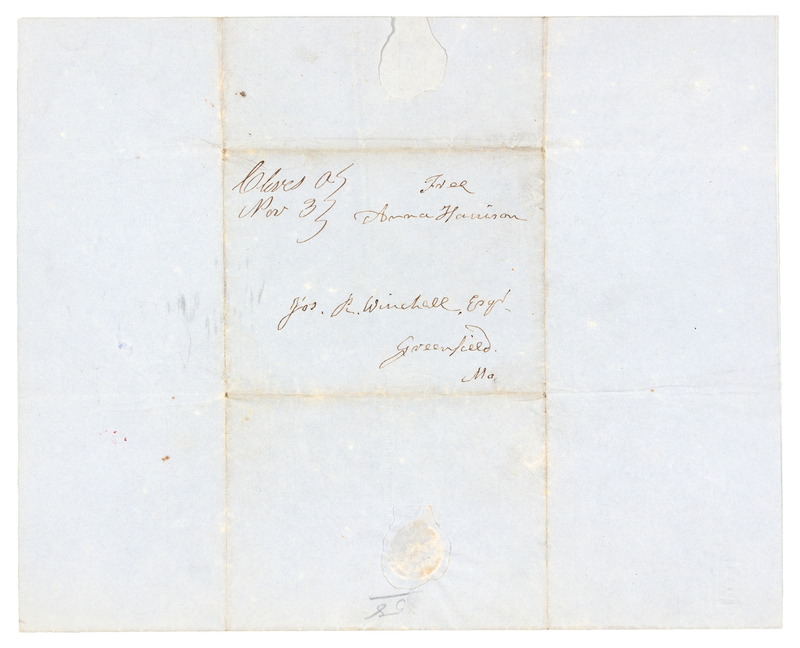 Cleves O
Nov 3
Free
Anna Harrison
Jos. R. Winchell, Esqr.
Greenfield.
Mo.